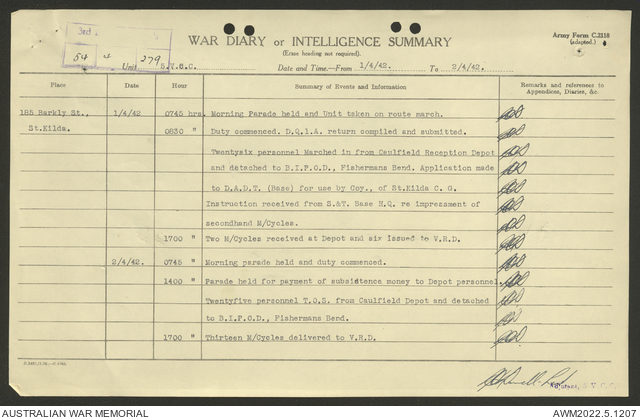 3rd
54 4 279
WAR DIARY or INTELLIGENCE SUMMARY
(Erase heading not required).
Army Form C.2118
(adapted.)
Unit S.V.C.C.
Date and Time.—From 1/4/42. To 2/4/42.
Place Date Hour Summary of Events and Information Remarks and references to Appendices, Diaries, &c.
185 Barkly St., 1/4/42 0745 hrs. Morning Parade held and Unit taken on route march.
St.Kilda. 0830 " Duty commenced. D.Q.L.A. return compiled and submitted.
Twentysix personnel Marched in from Caulfield Reception Depot
and detached to B.I.P.O.D., Fishermans Bend. Application made
to D.A.D.T. (Base) for use by Coy., of St.Kilda C. G.
Instruction received from S.&T. Base H.Q. re impressment of
secondhand M/Cycles.
1700 " Two M/Cycles received at Depot and six issued to V.R.D.
2/4/42. 0745 " Morning parade held and duty commenced.
1400 " Parade held for payment of subsistence money to Depot personnel.
Twentyfive personnel T.O.S. from Caulfield Depot and detached
to B.I.P.O.D., Fishermans Bend.
1700 " Thirteen M/Cycles delivered to V.R.D.
AUSTRALIAN WAR MEMORIAL AWM2022.5.1207